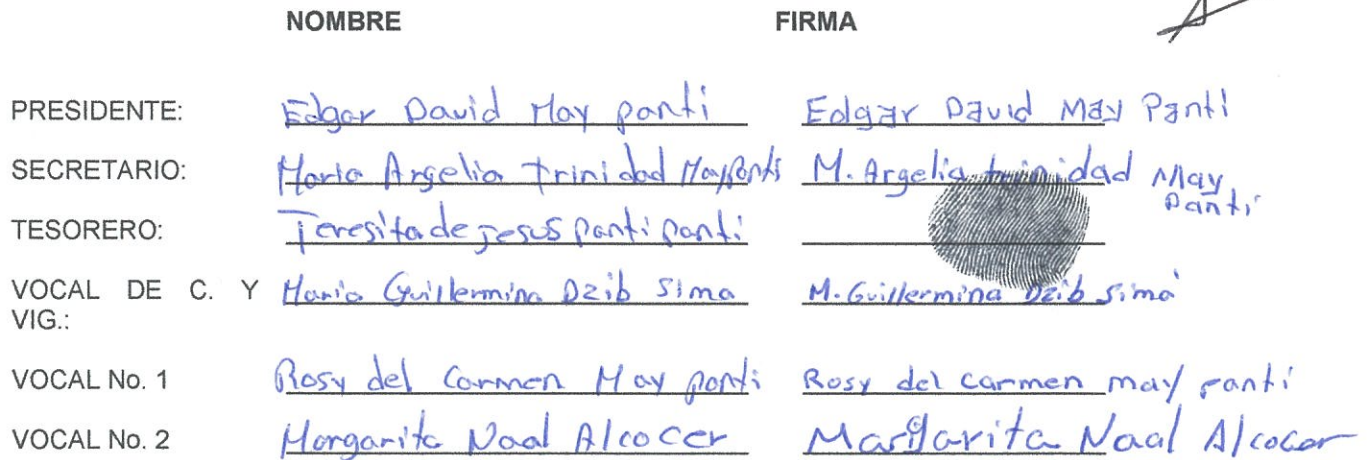 NOMBRE FIRMA
PRESIDENTE: Edgar David May panti Edgar David May Panti
SECRETARIO: Maria Argelia Trinidad May Panti M. Argelia trinidad May Panti
TESORERO: Teresita de Jesus Panti Panti
VOCAL DE C. Y VIG.: Maria Guillermina Dzib Sima M. Guillermina Dzib Simá
VOCAL No. 1 Rosy del Carmen May panti Rosy del carmen may panti
VOCAL No. 2 Margarita Naal Alcocer Margarita Naal Alcocer